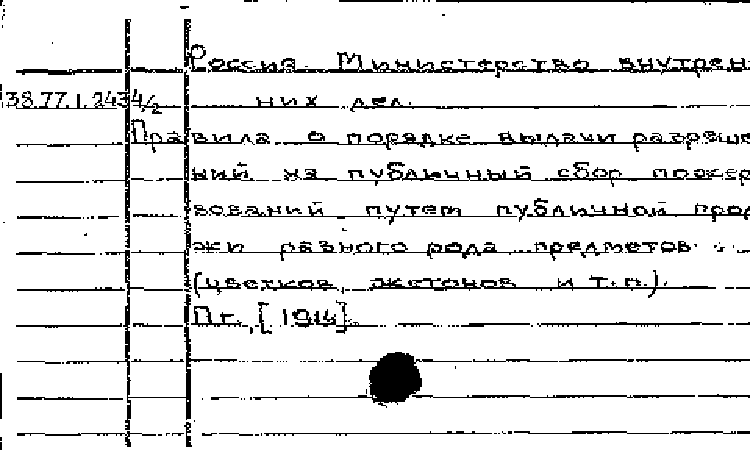 Россия. Министерство внутрен
38.77.1.2434/2 них дел.
Правила о порядке выдачи разреше
ний на публичный сбор пожер
вований путем публичной прод
жи разного рода предметов
(цветков, жетонов и т.п.).
Пг., [1914].